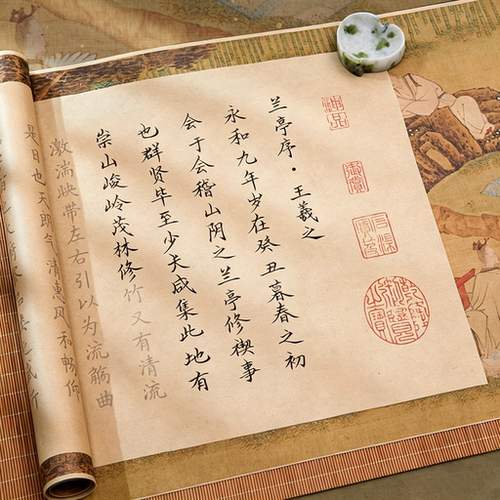 神品
兰亭序·王羲之
永和九年岁在癸丑暮春之初
会于会稽山阴之兰亭修禊事
也群贤毕至少夫咸集此地有
崇山峻岭茂林修竹又有清流
激湍映带左右引以为流觞曲
是日也天朗气清惠风和畅仰